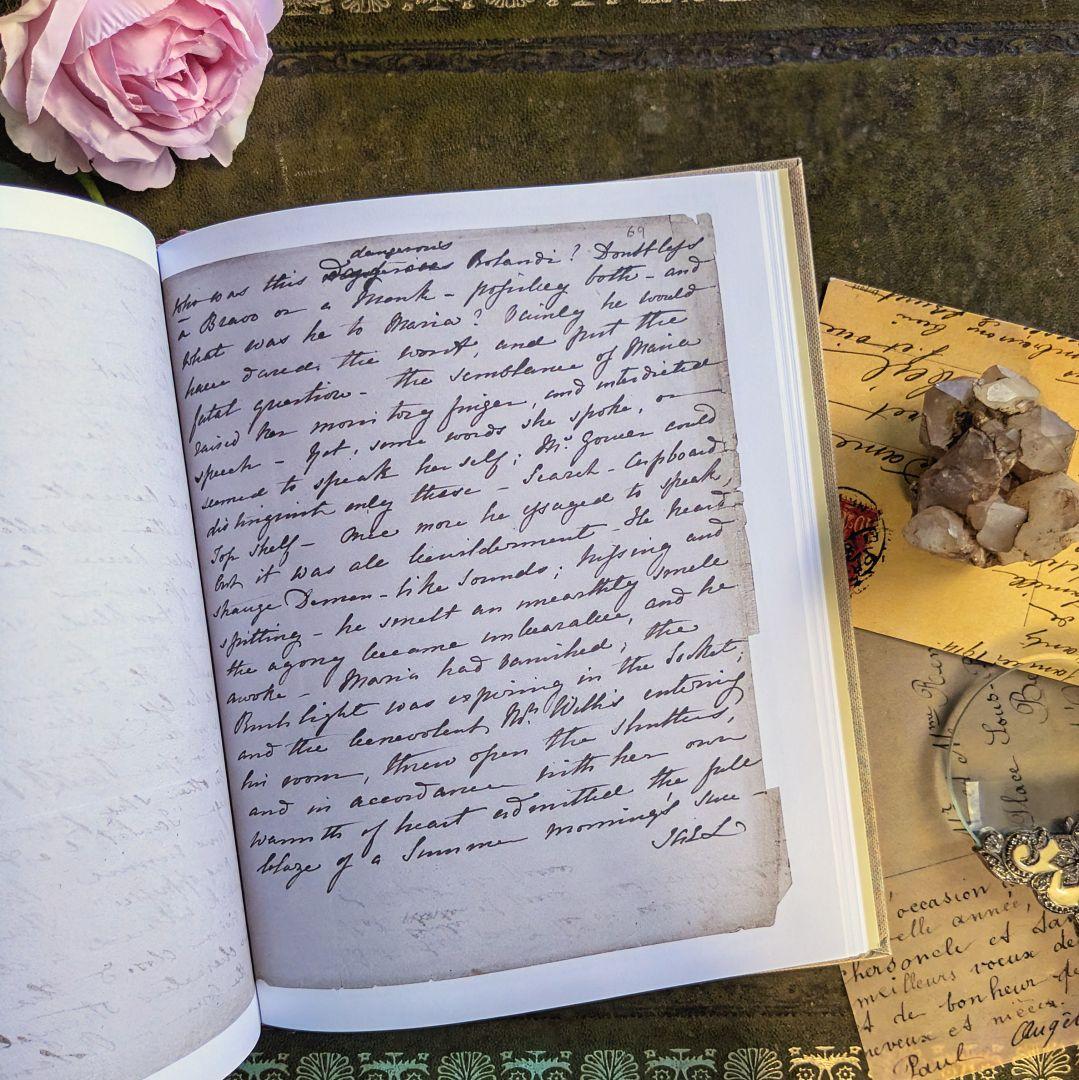 69
dangerous
who was this Dangerous Rolandi? Doubtless
a Bravo or a Monk – possibley both – and
what was he to Maria? Vainly he would
have dared the worst, and put the
fatal question – the semblance of Maria
raised her monitory finger, and interdicted
speech – Yet, some words she spoke, or
seemed to speak herself; Mr Gower could
distinguish only these – Search – Cupboard
Top Shelf – Once more he essayed to speak,
but it was all bewilderment – He heard
strange Demon-like Sounds; hissing and
spitting – he smelt an unearthly smell
the agony became unbearable, and he
awoke – Maria had vanished; the
Rushlight was expiring in the Socket;
and the benevolent Mrs Willis entering
his room, threw open the shutters,
and in accordance with her own
warmth of heart admitted the full
blaze of a Summer morning's Sun –
l'occasion
elle année,
personele et
meilleurs voeux de
de bonheur
neveux et nièces.
Paul Angèle
Place Sous-